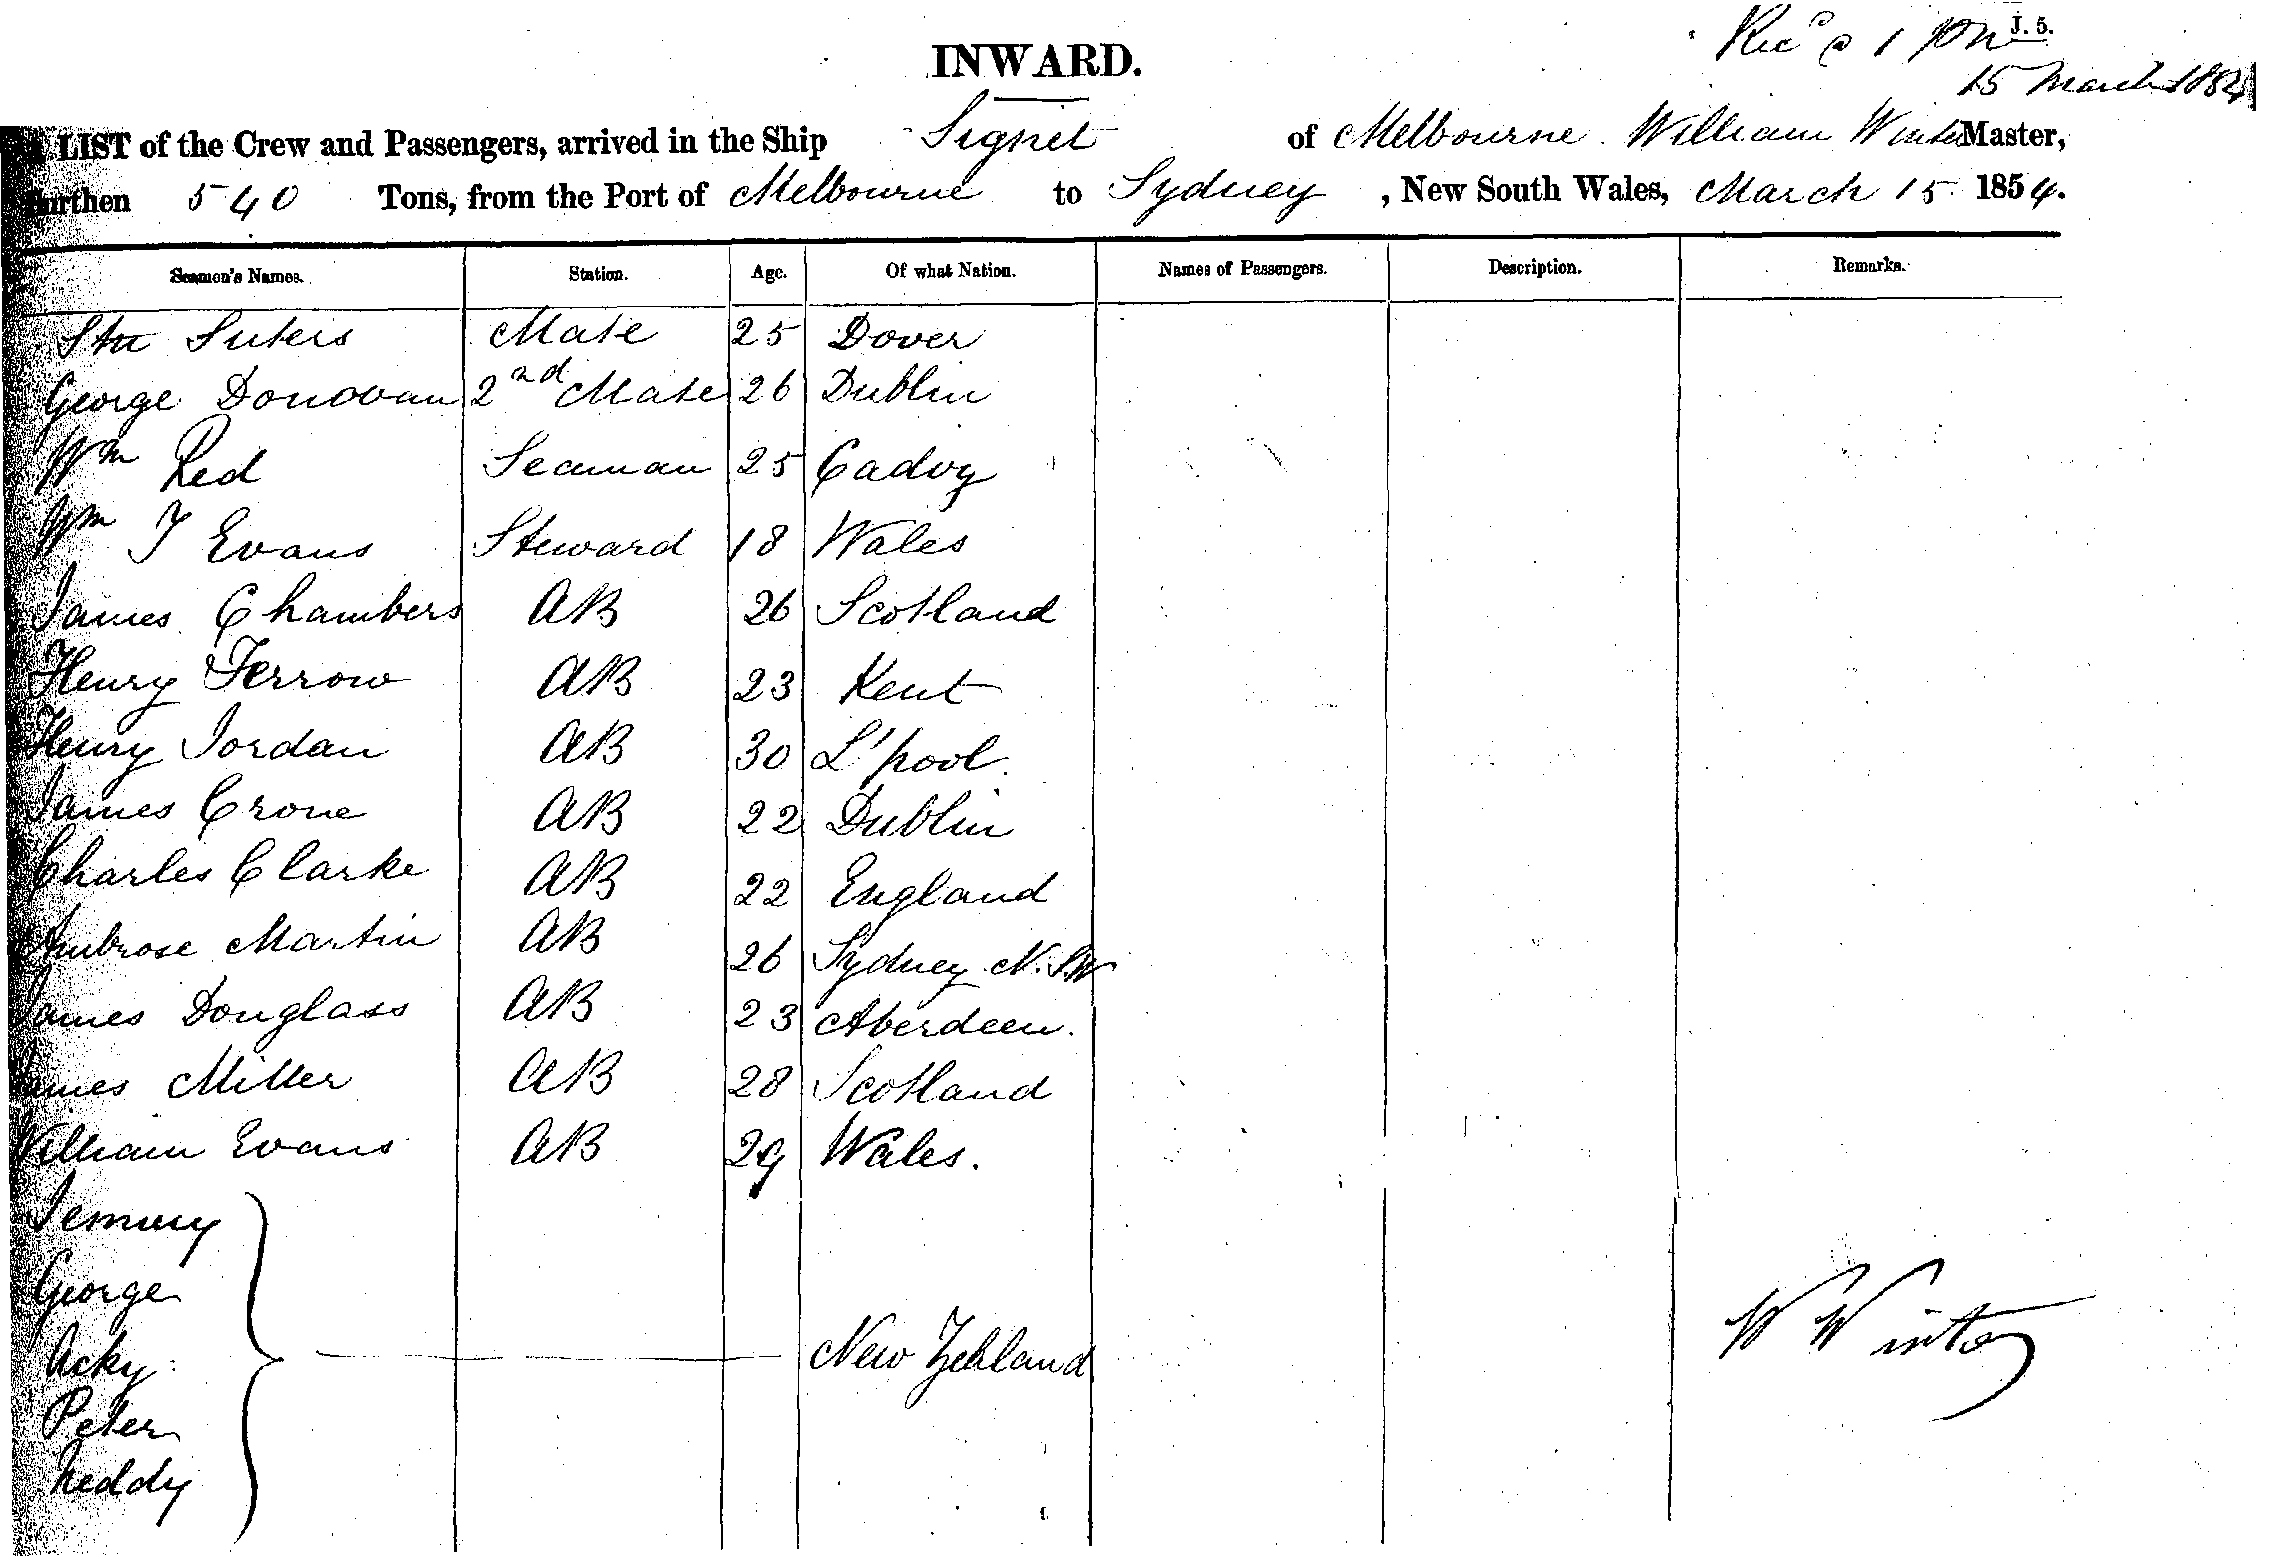 INWARD.
J. 5.
Rec^d @ 1 pm
15 March 1854
LIST of the Crew and Passengers, arrived in the Ship Signet of Melbourne. William Winter Master,
Burthen 540 Tons, from the Port of Melbourne to Sydney, New South Wales, March 15 1854.
Seamen's Names. Station. Age. Of what Nation. Names of Passengers. Description. Remarks.
Suters Mate 25 Dover
George Donovan 2nd Mate 26 Dublin
Wm Red Seaman 25
Wm J Evans Steward 18 Wales
James Chambers AB 26 Scotland
Henry Ferrow AB 23 Kent
Henry Jordan AB 30 L'pool.
James Crone AB 22 Dublin
Charles Clarke AB 22 England
Ambrose Martin AB 26 Sydney N.S.W
James Douglass AB 23 Aberdeen.
James Miller AB 28 Scotland
William Evans AB 29 Wales.
Jemmy
George
Acky
Peter
Neddy
New Zealand
W Winter